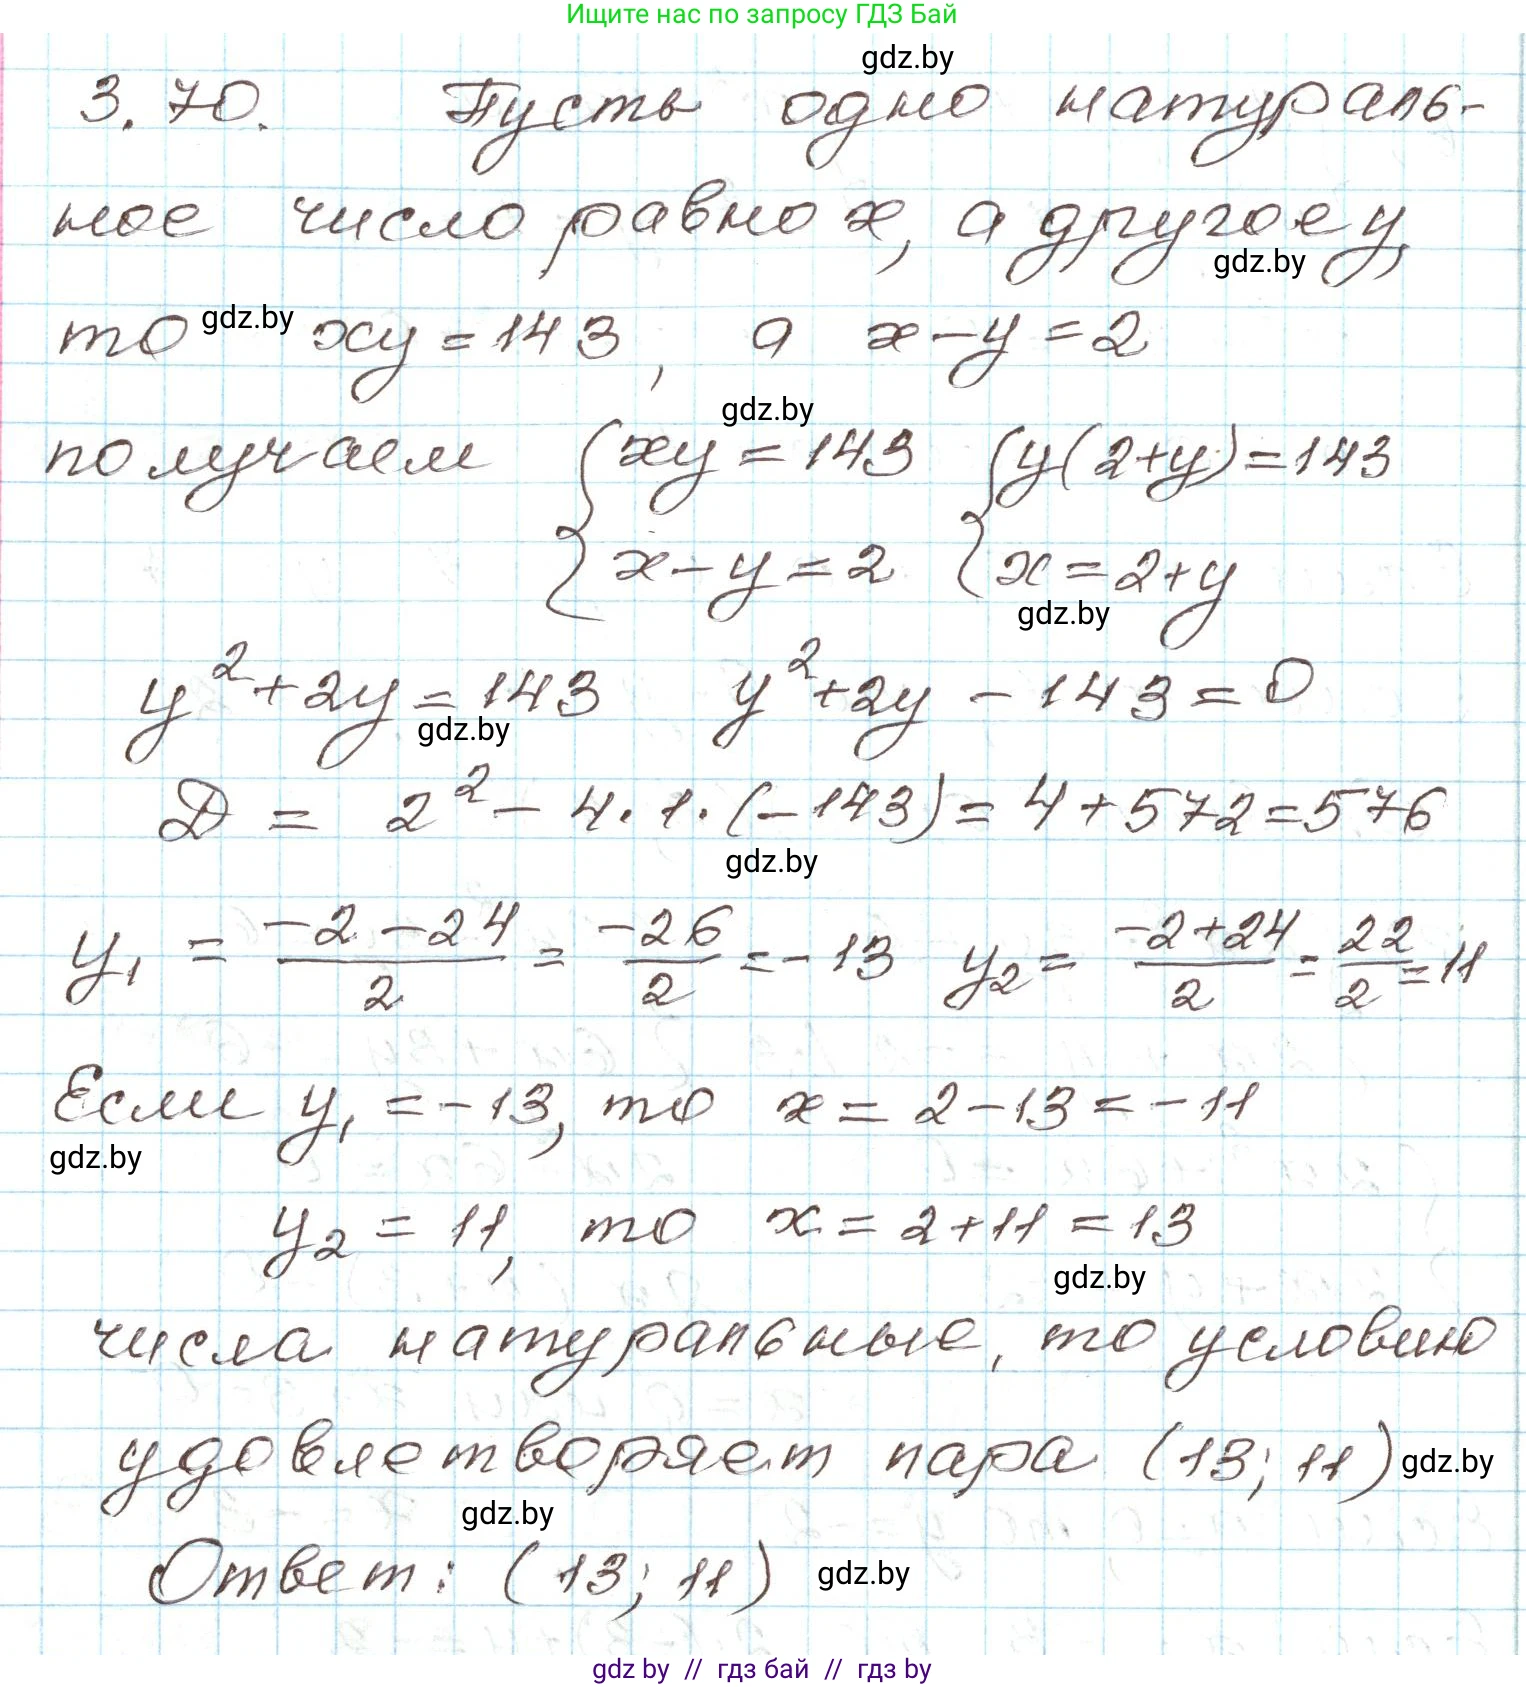 Ищите нас по запросу ГДЗ Бай
gdz.by
3.70. Пусть одно натураль-
ное число равно x, а другое y,
gdz.by
то gdz.by xy = 143, а x - y = 2
gdz.by
получаем { xy = 143 { y(2+y) = 143
x - y = 2 x = 2 + y
gdz.by
y² + 2y = 143 y² + 2y - 143 = 0
gdz.by
Д = 2² - 4 · 1 · (-143) = 4 + 572 = 576
gdz.by
y₁ = (-2 - 24)/2 = -26/2 = -13 y₂ = (-2+24)/2 = 22/2 = 11
Если y₁ = -13, то x = 2 - 13 = -11
gdz.by
y₂ = 11, то x = 2 + 11 = 13
gdz.by
числа натуральные, то условию
удовлетворяет пара (13; 11) gdz.by
gdz.by
Ответ: (13; 11) gdz.by
gdz by // гдз бай // гдз by